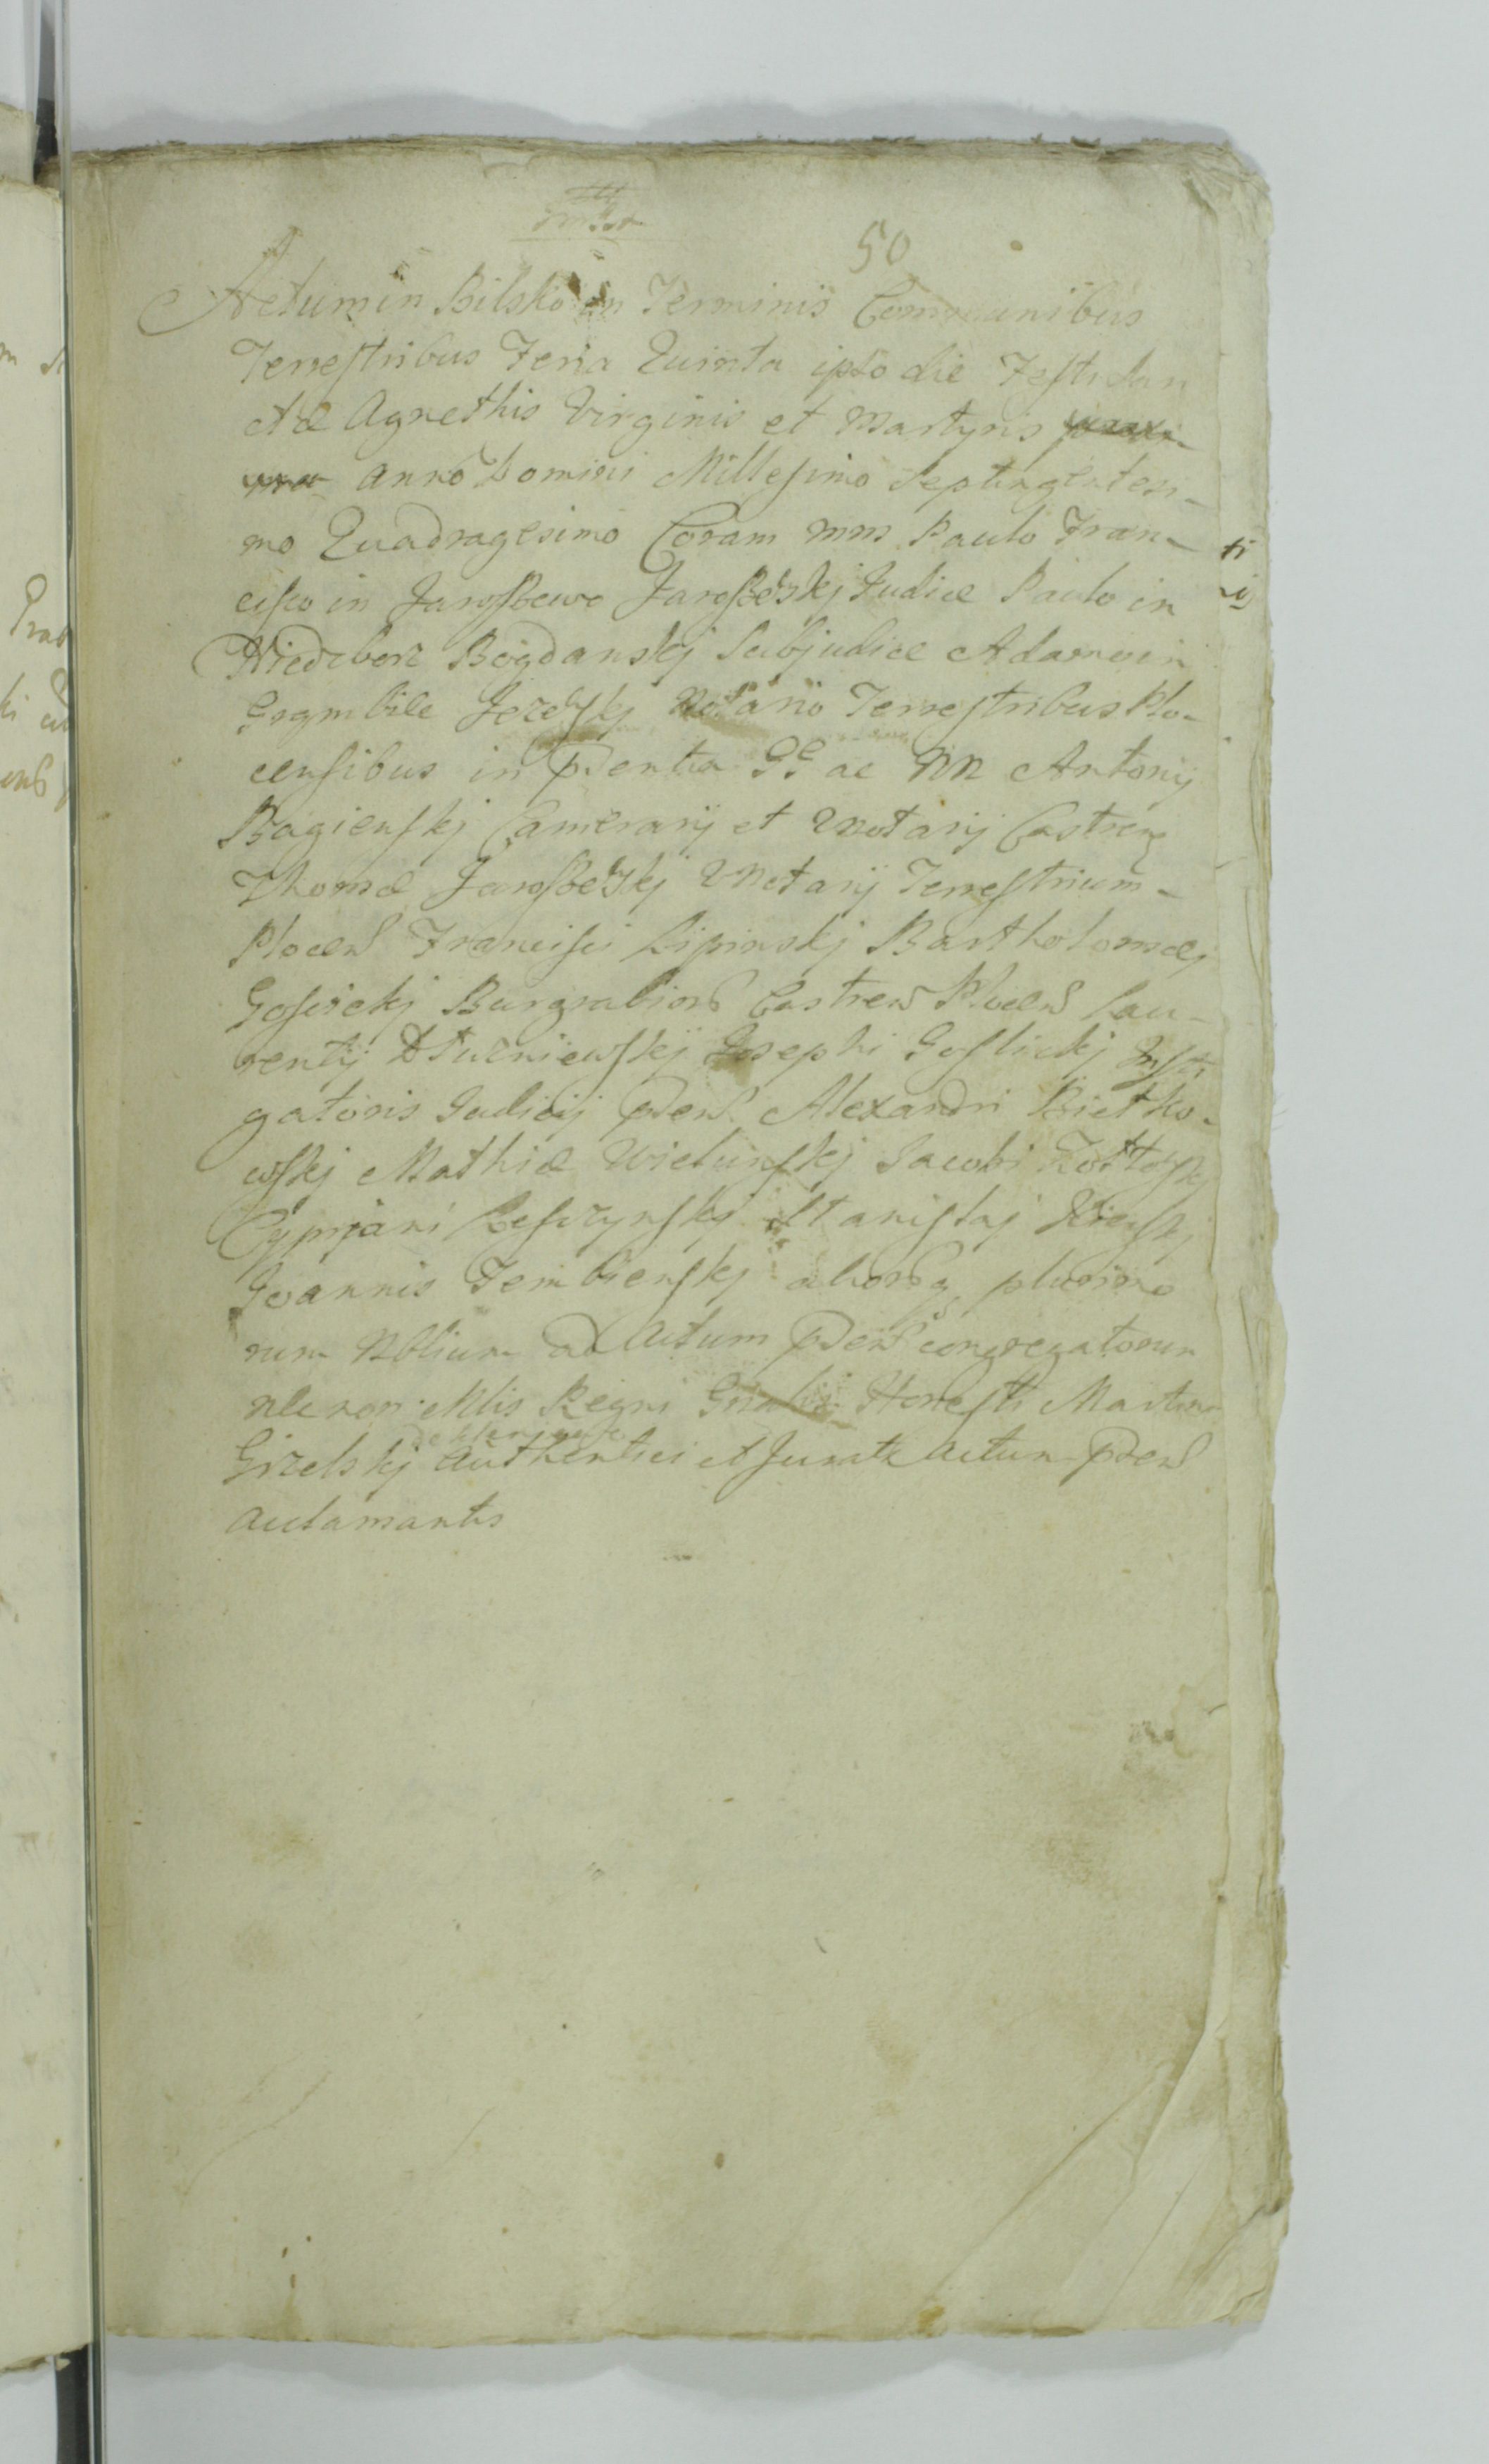 50
Actum in Bilsko in Terminis Communibus
Terrestribus Feria Quinta ipso die Festi San
ctæ Agnethis Virginis et Martyris
Anno Domini Millesimo Septingentesi-
mo Quadragesimo Coram mm Paulo Fran-
cisco in Jaroszewo Jaroszewskj Judice Paulo in
Niedrborz Bogdanskj Subjudice Adamo in
Jezewskj Notario Terrestribus Plo-
censibus in pdentia GG ac NN Antonij
Bagienskj Camerarij et Notarij Castren
Thomæ Jaroszewskj VNotarij Terrestrium
Plocen Francisci Lipinskj Bartholomæj
Goscickj Burgrabior Castren Plocen Lau-
rentij Dłuzniewskij Josephi Goslickj Insti
gatoris Judicij pden Alexandri Bietko-
wskj Mathiæ Wielunskj Jacobi
Cyprjani Leszczynskj Stanislaj
Joannis Zembrzenskj aliorq plurimo
rum Nblium ad Actum pden congregatorum
nec non Mlis Regni Gnalis Honesti Martini
Gizelskj Authentici et Jurati Actum pden
Aclamantis